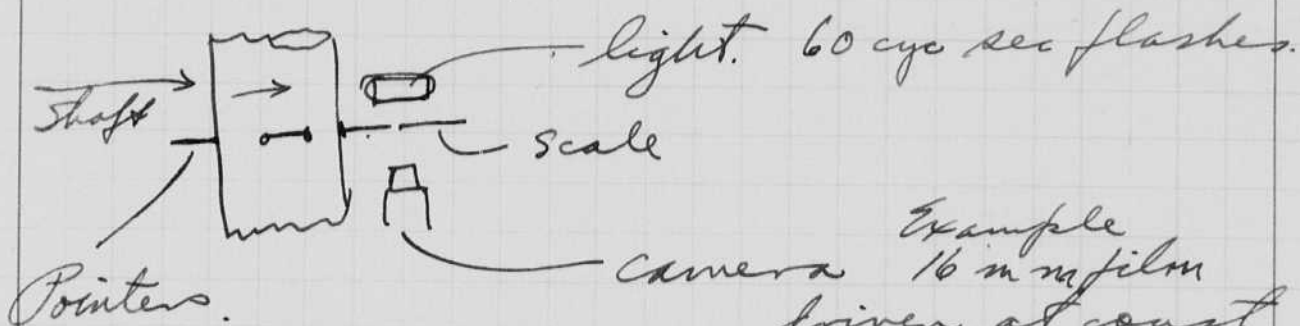 light. 60 cyc sec flashes.
Shaft
scale
Example
camera 16 mm film
Pointers.
driven at const